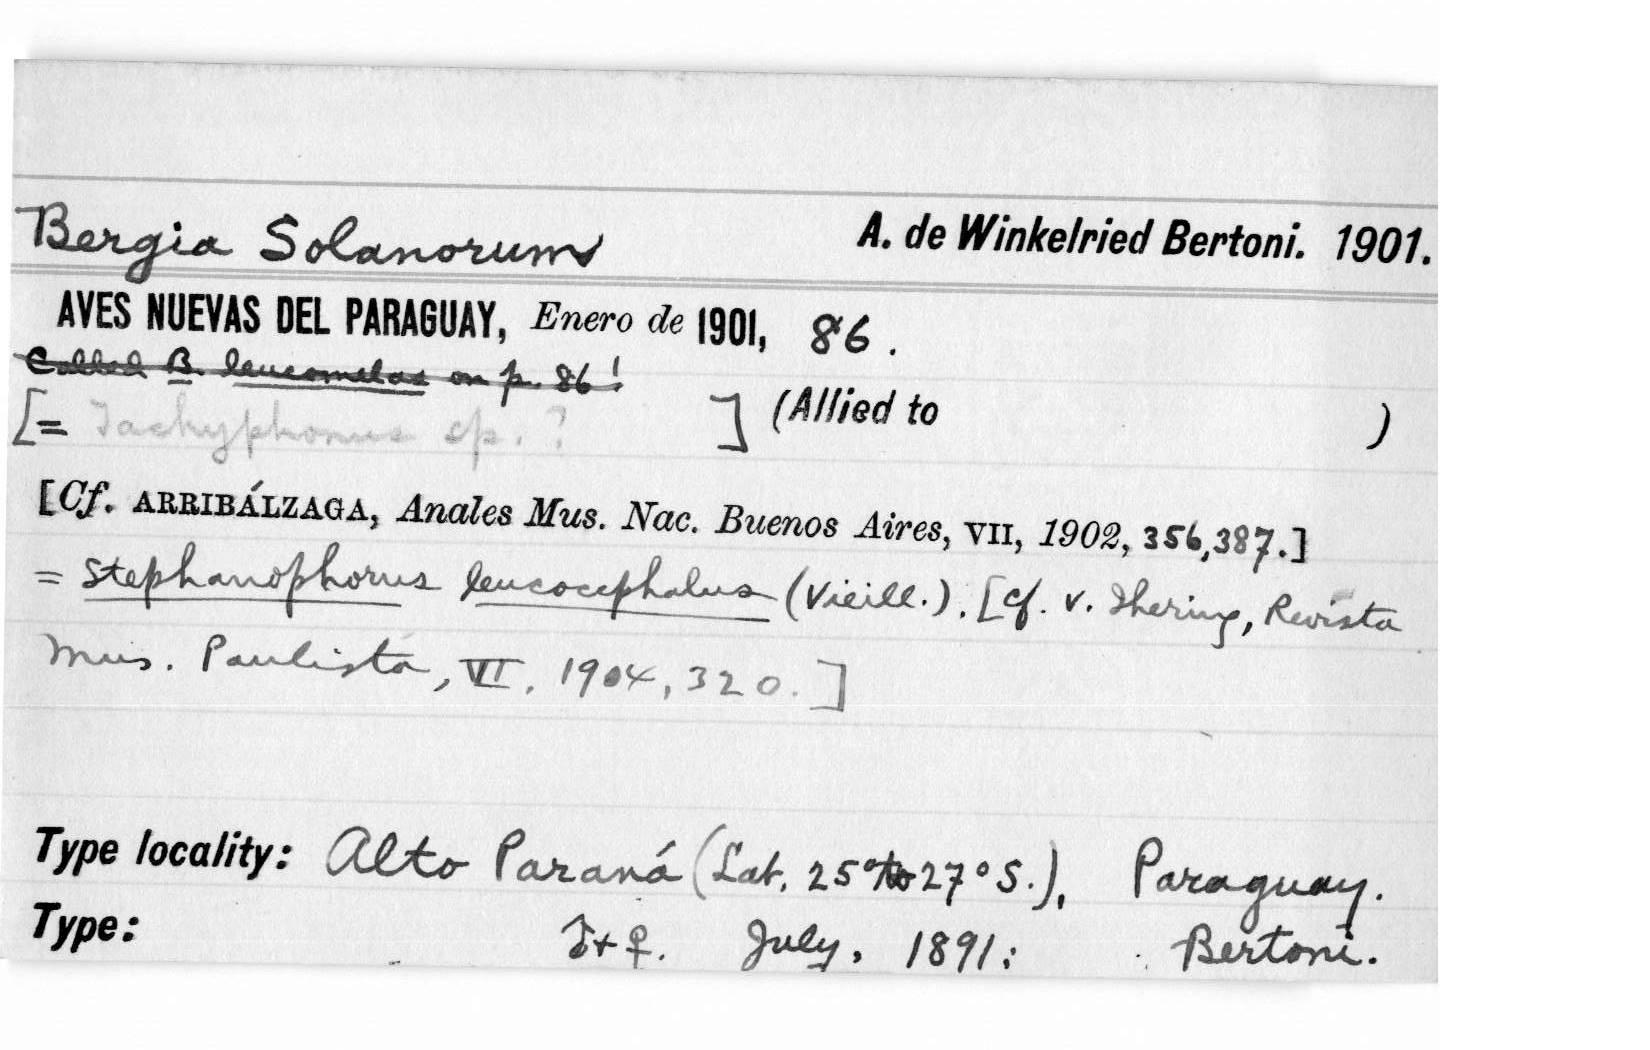 Bergia Solanorum A. de Winkelried Bertoni. 1901.
AVES NUEVAS DEL PARAGUAY, Enero de 1901, 86.
Called B. leucomelas on p. 86!
[= Tachyphonus sp. ? ] (Allied to )
[Cf. ARRIBÁLZAGA, Anales Mus. Nac. Buenos Aires, VII, 1902, 356,387.]
= Stephanophorus leucocephalus (Vieill.). [Cf. v. Ihering, Revista
Mus. Paulista, VI, 1904, 320.]
Type locality: Alto Paraná (Lat. 25° to 27° S.), Paraguay.
Type: ♂+♀. July, 1891: Bertoni.